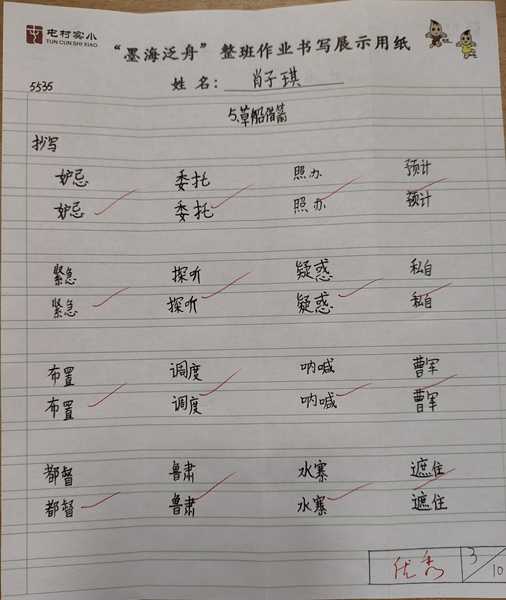 屯村实小
TUN CUN SHI XIAO
“墨海泛舟”整班作业书写展示用纸
5535 姓名：肖子琪
5.草船借箭
抄写
妒忌 委托 照办 预计
妒忌 委托 照办 预计
紧急 探听 疑惑 私自
紧急 探听 疑惑 私自
布置 调度 呐喊 曹军
布置 调度 呐喊 曹军
都督 鲁肃 水寨 遮住
都督 鲁肃 水寨 遮住
优秀 3/10